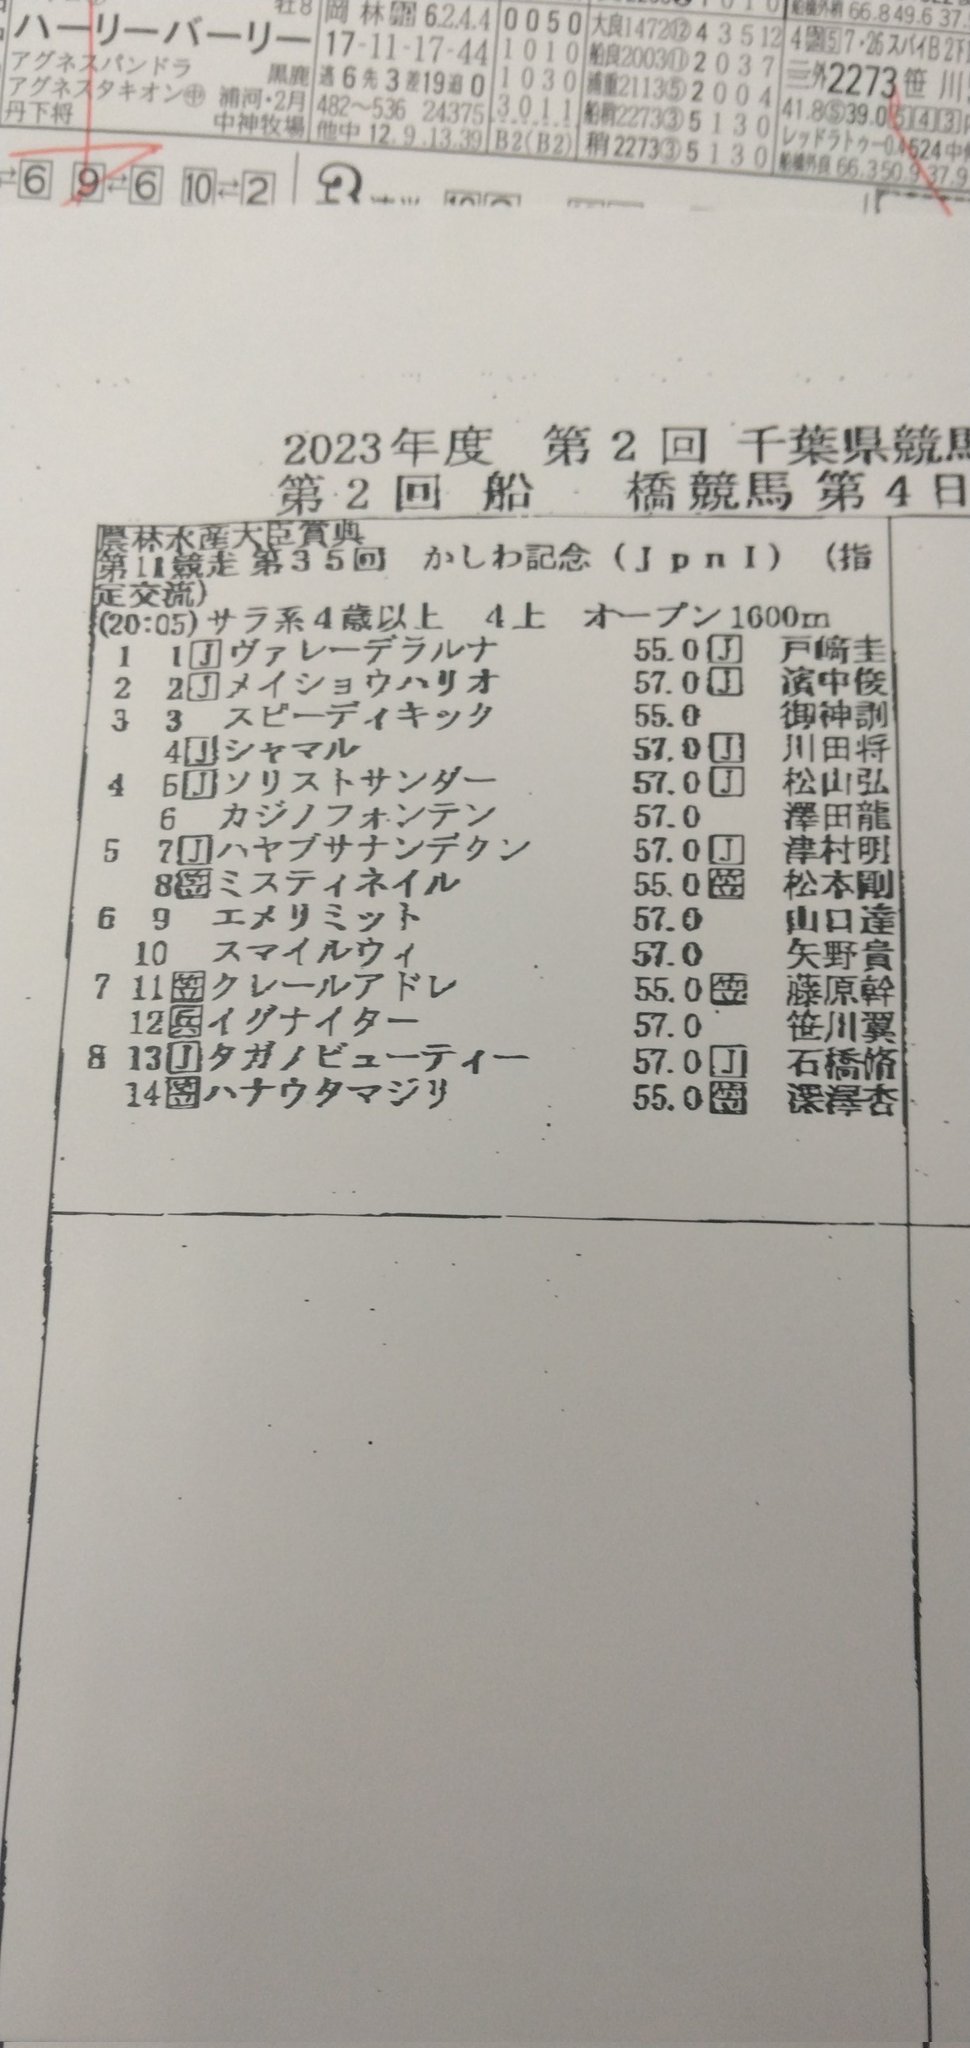 ハーリーバーリー
アグネスパンドラ
アグネスタキオン㊥ 黒鹿
丹下将 浦河・2月
中神牧場
牡8
岡林 6.2.4.4
17-11-17-44
逃6先3差19追0
482～536 24375
他中12.9.13.39
0050
1010
1030
3.0.1.1
B2(B2)
大良1472⑫ 4 3 5 12
船良2003⑪ 2 0 3 7
浦重2113⑤ 2 0 0 4
船稍2273③ 5 1 3 0
稍2273③ 5 1 3 0
66.8 49.6 37.
7・26 スパイB2下
三外2273 笹川
41.8⑤39.0 5 4 3
レッドラトゥー
船橋外良 66.3 50.9 37.9
6 9⇄6 10⇄2
2023年度 第2回 千葉県競馬
第2回 船 橋競馬 第4日
農林水産大臣賞典
第11競走 第35回 かしわ記念（JpnI）（指
定交流）
(20:05) サラ系4歳以上 4上 オープン1600m
1 1 J ヴァレーデラルナ 55.0 J 戸崎圭
2 2 J メイショウハリオ 57.0 J 濱中俊
3 3 スピーディキック 55.0 御神訓
4 J シャマル 57.0 J 川田将
4 5 J ソリストサンダー 57.0 J 松山弘
6 カジノフォンテン 57.0 澤田龍
5 7 J ハヤブサナンデクン 57.0 J 津村明
8 笠 ミスティネイル 55.0 笠 松本剛
6 9 エメリミット 57.0 山口達
10 スマイルウィ 57.0 矢野貴
7 11 笠 クレールアドレ 55.0 笠 藤原幹
12 兵 イグナイター 57.0 笹川翼
8 13 J タガノビューティー 57.0 J 石橋脩
14 笠 ハナウタマジリ 55.0 笠 深澤杏